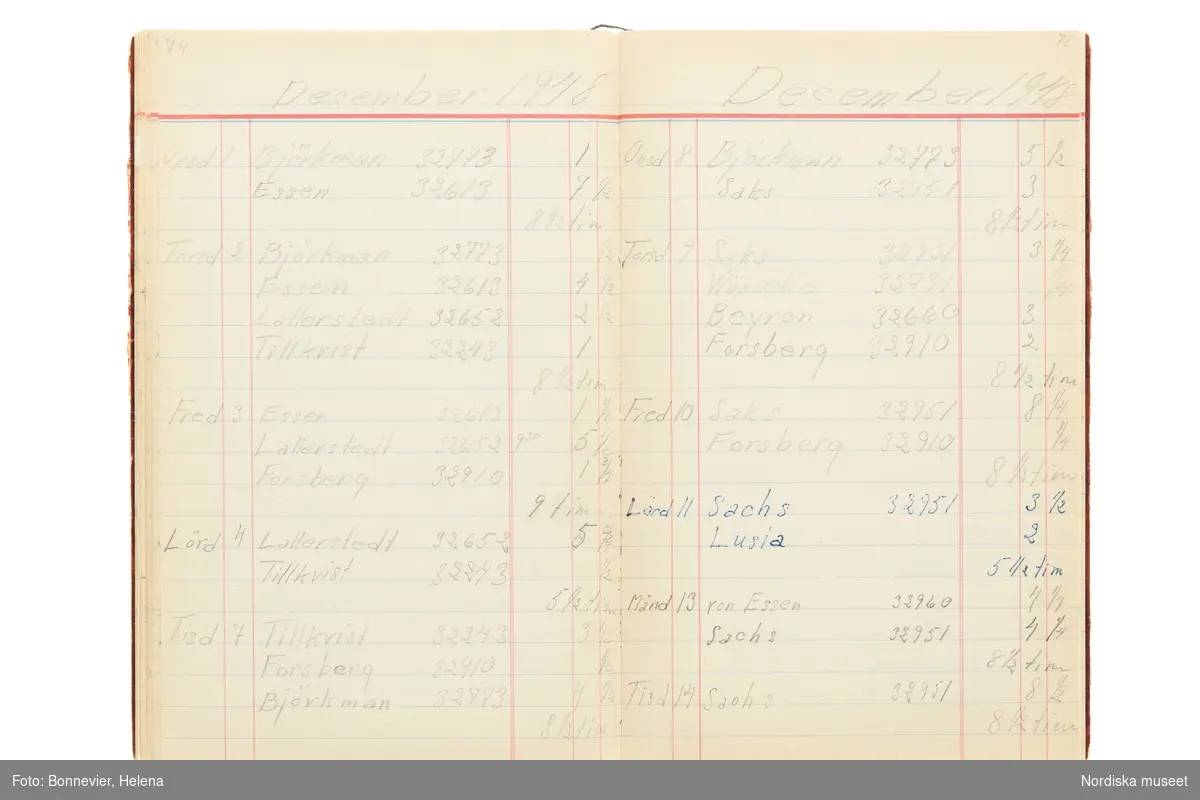 74
December 1948
Onsd 1 Björkman 32773 1
Essen 32613 7 1/2
8 1/2 tim
Torsd 2 Björkman 32773 1/2
Essen 32613 4 1/2
Lallerstedt 32652 2 1/2
Tillkvist 32243 1
8 1/2 tim
Fred 3 Essen 32613 1
Lallerstedt 32652 9 30 5
Forsberg 32910 1
9 tim
Lörd 4 Lallerstedt 32652 5
Tillkvist 32243 1/2
5 1/2 tim
Tisd 7 Tillkvist 32243 3 1/2
Forsberg 32910 1/2
Björkman 32773 4 1/2
8 1/2 tim
75
December 1948
Onsd 8 Björkman 32773 5 1/2
Saks 32951 3
8 1/2 tim
Torsd 9 Saks 32951 3 1/4
Wünsche 32791
Beyron 32660 3
Forsberg 32910 2
8 1/2 tim
Fred 10 Saks 32951 8 1/4
Forsberg 32910 1/4
8 1/2 tim
Lörd 11 Sachs 32951 3 1/2
Lusia 2
5 1/2 tim
Månd 13 von Essen 32960 4 1/4
Sachs 32951 4 1/4
8 1/2 tim
Tisd 14 Sachs 32951 8 1/2
8 1/2 tim
Foto: Bonnevier, Helena
Nordiska museet